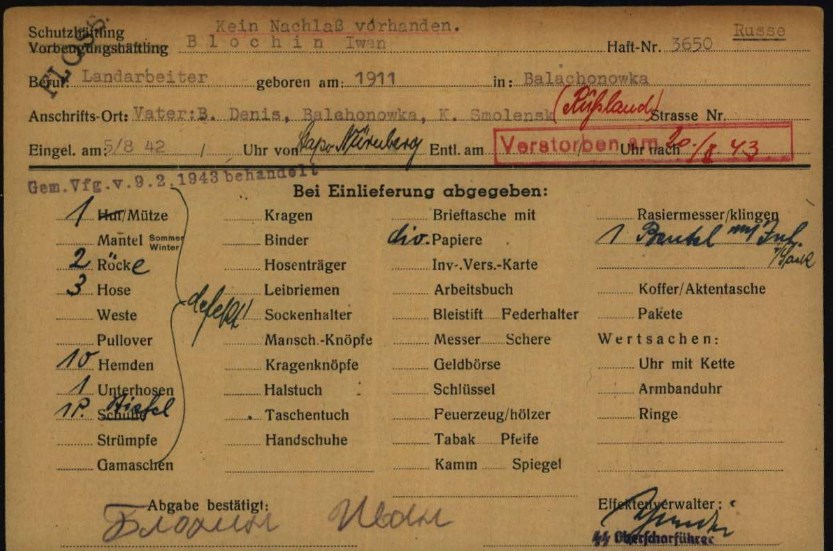 FLOSS.
Kein Nachlaß vorhanden.
Schutzhäftling
Vorbeugungshäftling Blochin Iwan Haft-Nr. 3650 Russe
Beruf: Landarbeiter geboren am: 1911 in: Balachonowka
Anschrifts-Ort: Vater: B. Denis, Balahonowka, K. Smolensk (Rußland) Strasse Nr.
Eingel. am: 5/8 42 / Uhr von Stapo Nürnberg Entl. am Verstorben am 20./8 43 Uhr nach
Gem.Vfg.v.9.2.1943 behandelt
Bei Einlieferung abgegeben:
1 Hut/Mütze Kragen Brieftasche mit Rasiermesser/klingen
Mantel Sommer Winter Binder div. Papiere 1 Beutel mit
2 Röcke Hosenträger Inv.-Vers.-Karte
3 Hose Leibriemen Arbeitsbuch Koffer/Aktentasche
Weste Sockenhalter Bleistift Federhalter Pakete
defekt!
Pullover Mansch.-Knöpfe Messer Schere Wertsachen:
10 Hemden Kragenknöpfe Geldbörse Uhr mit Kette
1 Unterhosen Halstuch Schlüssel Armbanduhr
1 P. Schuhe Stiefel Taschentuch Feuerzeug/hölzer Ringe
Strümpfe Handschuhe Tabak Pfeife
Gamaschen Kamm Spiegel
Abgabe bestätigt: Effektenverwalter:
Блохин Иван
SS Oberscharführer